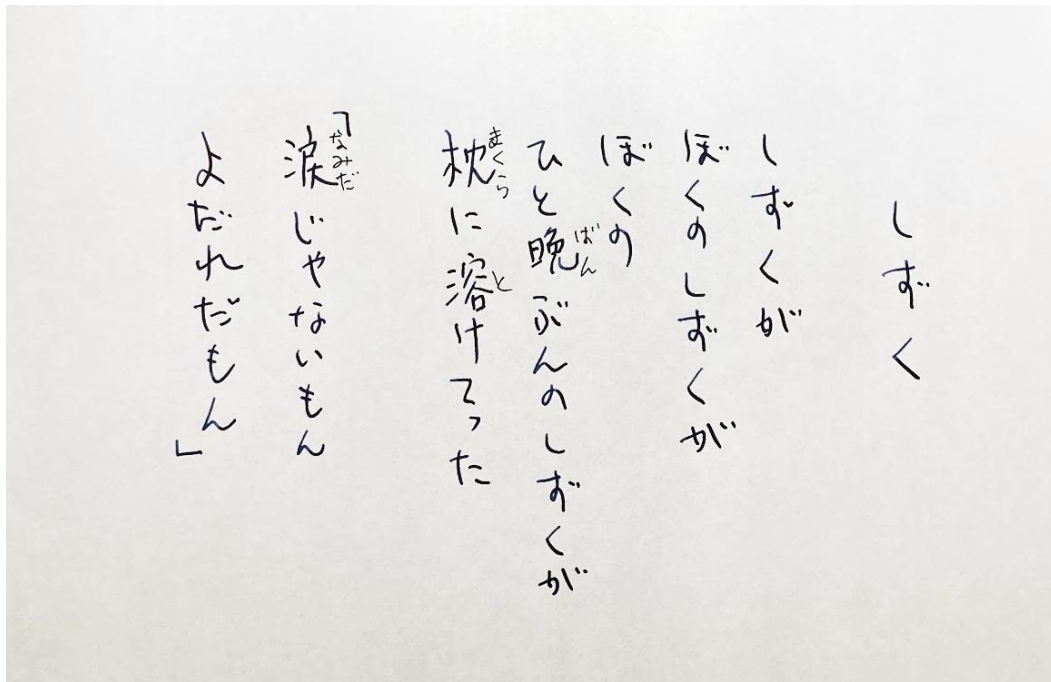 しずく
しずくが
ぼくのしずくが
ぼくの
ひと晩ぶんのしずくが
枕に溶けてった
「涙じゃないもん
よだれだもん」